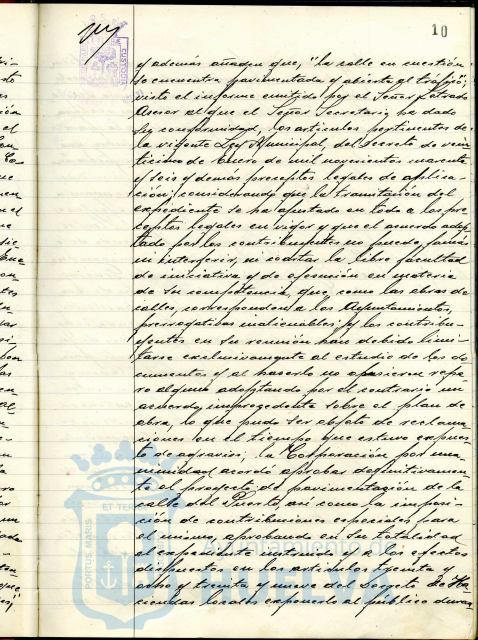 10
CUSTODIA
y además añaden que, "la calle en cuestión
se encuentra pavimentada y abierta al tráfico";
visto el informe emitido por el Señor Letrado
Asesor al que el Señor Secretario ha dado
su conformidad, los artículos pertinentes de
la vigente Ley Municipal, del Decreto de vein
ticinco de Enero de mil novecientos cuarenta
y seis y demás preceptos legales de aplica-
ción; considerando que la tramitación del
expediente se ha ajustado en todo a los pre
ceptos legales en vigor y que el acuerdo adop
tado por los contribuyentes no puede, jamás
ni interferir, ni coartar la libre facultad
de iniciativa y de ejecución en materia
de su competencia, que, como las obras de
calles, corresponden a los Ayuntamientos,
prerrogativas inalienables; y los contribu-
yentes en su reunión han debido limi-
tarse exclusivamente al estudio de los do
cumentos y al hacerlo no opusieron repa
ro alguno, adoptando por el contrario un
acuerdo improcedente sobre el plan de
obra, lo que pudo ser objeto de reclama
ciones en el tiempo que estuvo expues
to de agravios; la Corporación por una
nimidad acordó aprobar definitivamen-
te el proyecto de pavimentación de la
calle del Puerto, así como la imposi-
ción de contribuciones especiales para
el mismo, aprobando en su totalidad
el expediente instruido y a los efectos
dispuestos en los artículos treinta y
ocho y treinta y nueve del Decreto de Ha-
ciendas locales exponerlo al público duran
PORTUS MARIS
ET TERRAE
Ayuntamiento de
HUELVA